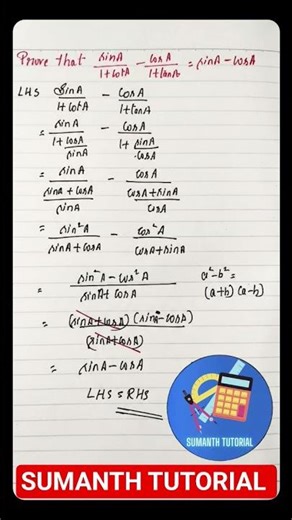 Prove that sinA/1+cotA - cosA/1+tanA = sinA - cosA
LHS sinA/1+cotA - cosA/1+tanA
= sinA/1+cosA/sinA - cosA/1+sinA/cosA
= sinA/sinA+cosA/sinA - cosA/cosA+sinA/cosA
= sin²A/sinA+cosA - cos²A/cosA+sinA
= sin²A - cos²A/sinA+cosA a²-b² =
(a+b) (a-b)
= (sinA+cosA) (sinA-cosA)/(sinA+cosA)
= sinA - cosA
LHS = RHS
SUMANTH TUTORIAL
SUMANTH TUTORIAL